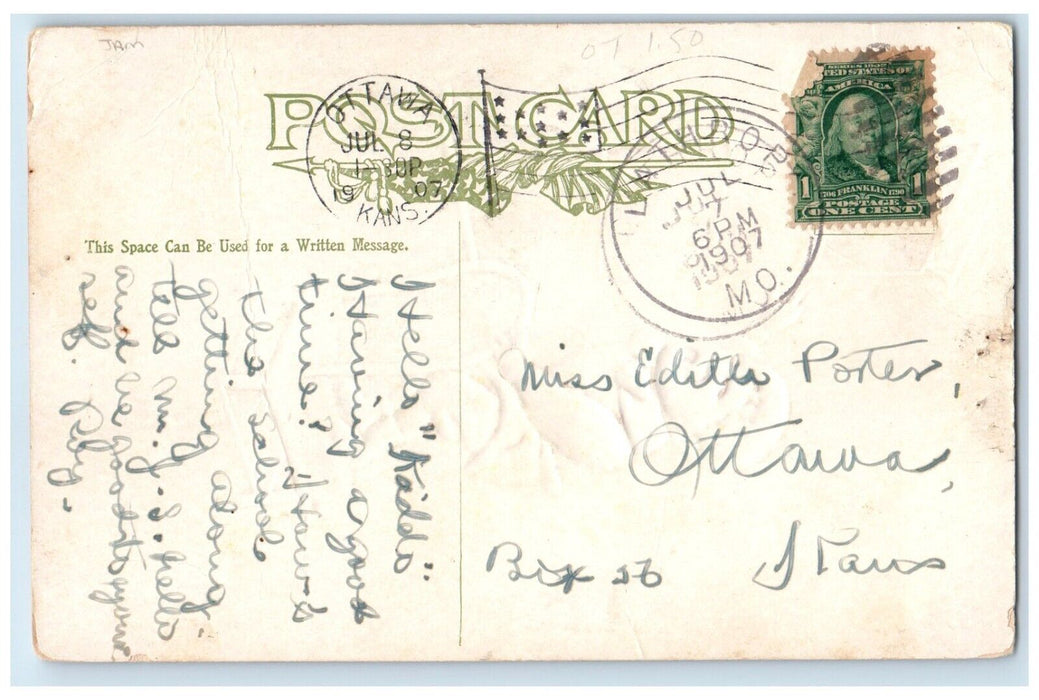 JAM
OT 1.50
POST CARD
OTTAWA
JUL 8
1-30P
19 07
KANS.
LATHROP
JUL
6 P.M
1907
MO.
SERIES 1902
UNITED STATES OF
AMERICA
1706 FRANKLIN 1790
1 POSTAGE 1
ONE CENT
This Space Can Be Used for a Written Message.
Hello "Kiddo".
Having a good
time? How's
the school
getting along.
tell Mr. J. S. hello
and be good to your
self.
Miss Edith Porter,
Ottawa,
Box 26 Kans